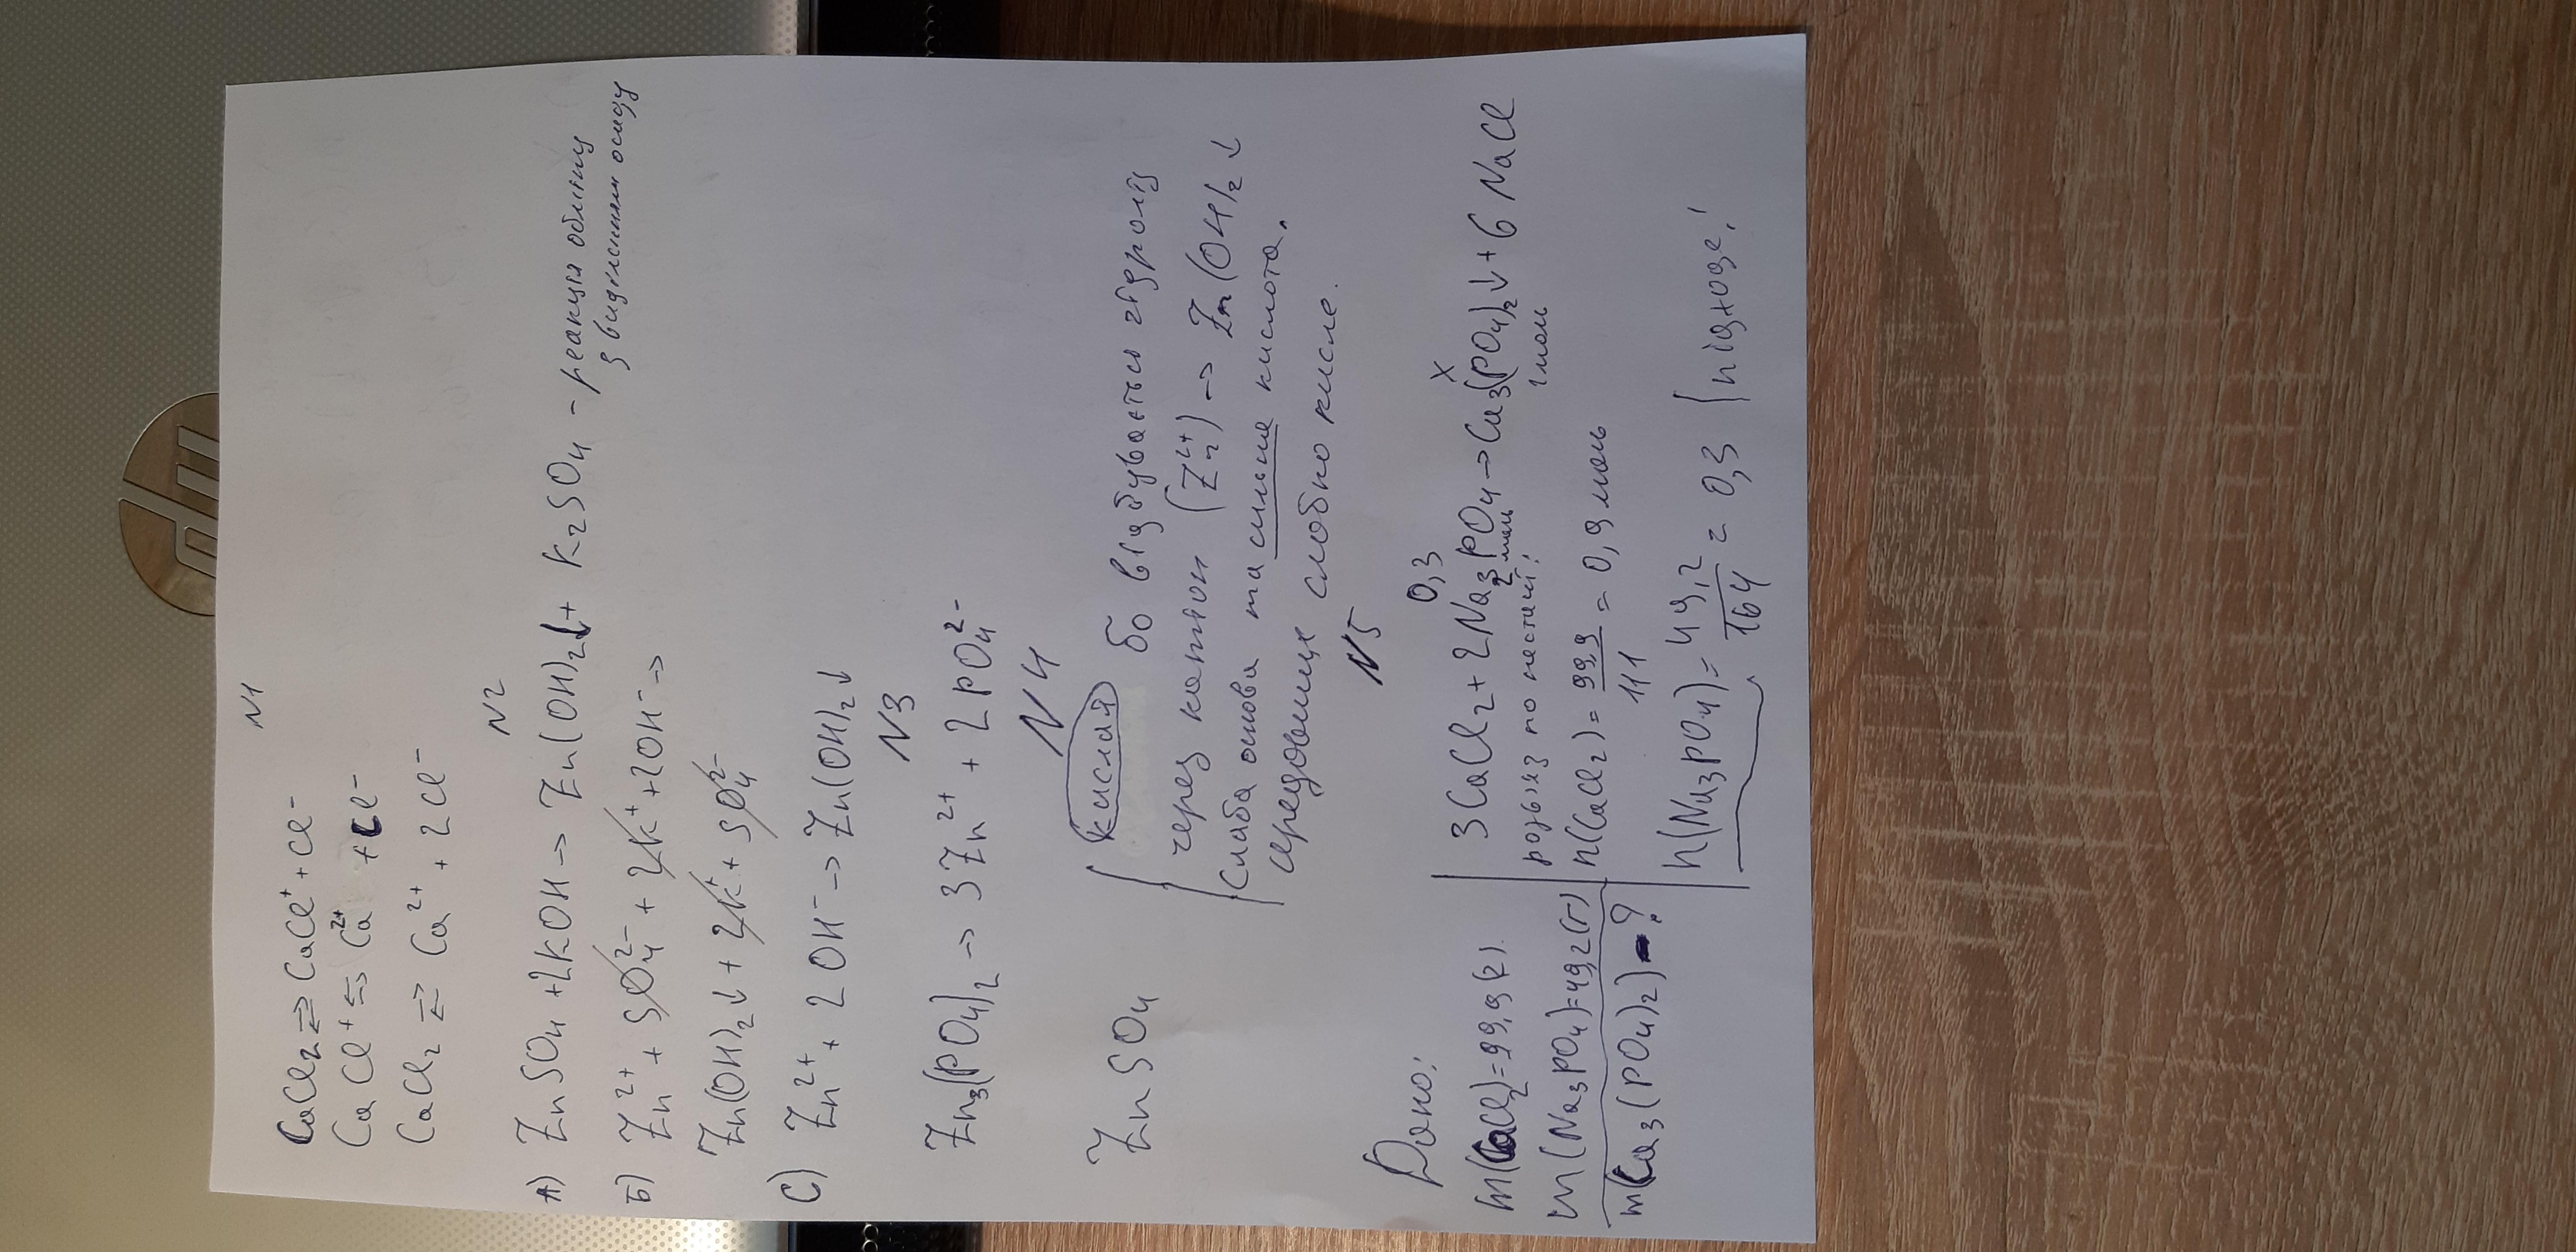 N1
CaCl₂ ⇄ CaCl⁺ + Cl⁻
CaCl⁺ ⇆ Ca²⁺ + Cl⁻
CaCl₂ ⇄ Ca²⁺ + 2Cl⁻
N2
А) ZnSO₄ + 2KOH → Zn(OH)₂↓ + K₂SO₄ - реакція обміну
з виділенням осаду
Б) Zn²⁺ + SO₄²⁻ + 2K⁺ + 2OH⁻ →
Zn(OH)₂↓ + 2K⁺ + SO₄²⁻
С) Zn²⁺ + 2OH⁻ → Zn(OH)₂↓
N3
Zn₃(PO₄)₂ → 3Zn²⁺ + 2PO₄²⁻
N4
ZnSO₄ кислая бо відбувається гідроліз
через катіон (Zn²⁺) → Zn(OH)₂↓
Слаба основа та сильна кислота.
середовище слобно кисле.
N5
Дано:
m(CaCl₂) = 99,9(г).
m(Na₃PO₄) = 49,2(г)
m(Ca₃(PO₄)₂) - ?
0,3 x
3CaCl₂ + 2Na₃PO₄ → Ca₃(PO₄)₂↓ + 6NaCl
2 моль 1 моль
розв'яз по нестачі!
n(CaCl₂) = 99,9/111 = 0,9 моль
n(Na₃PO₄) = 49,2/164 = 0,3
hp